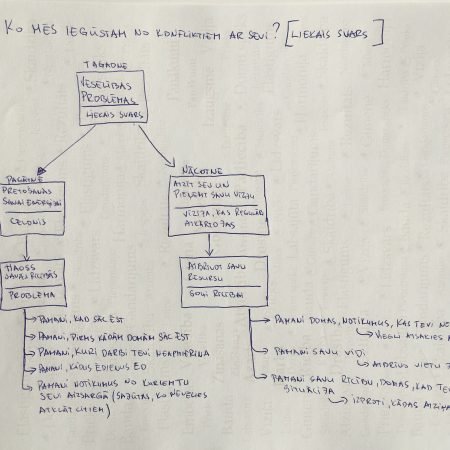 KO MĒS IEGŪSTAM NO KONFLIKTIEM AR SEVI? [LIEKAIS SVARS]
TAGADNE
VESELĪBAS
PROBLĒMAS
LIEKAIS SVARS
PAGĀTNE
PRETOŠANĀS
SAVAI ENERĢIJAI
CĒLONIS
NĀKOTNE
ATZĪT SEVI UN
PIEŅEMT SAVU VĪZIJU
VĪZIJA, KAS REGULĀRI
ATKĀRTOJAS
HAOSS
SAVĀS RĪCĪBĀS
PROBLĒMA
ATBRĪVOT SAVU
RESURSU
SOĻI RĪCĪBAI
PAMANI, KAD SĀC ĒST
PAMANI, PIRMS KĀDĀM DOMĀM SĀC ĒST
PAMANI, KURI DARBI TEVI NEAPMIERINA
PAMANI, KĀDUS ĒDIENUS ĒD
PAMANI NOTIKUMUS NO KURIEM TU
SEVI AIZSARGĀ (SAJŪTAS, KO NEVĒLIES
ATKLĀT CITIEM)
PAMANI DOMAS, NOTIKUMUS, KAS TEVI
VIEGLI AIZSKIES
PAMANI SAVU VIDI
ATBRĪVO VIETU
PAMANI SAVU RĪCĪBU, DOMAS, KAD
SITUĀCIJA
IZPROTI, KĀDAS